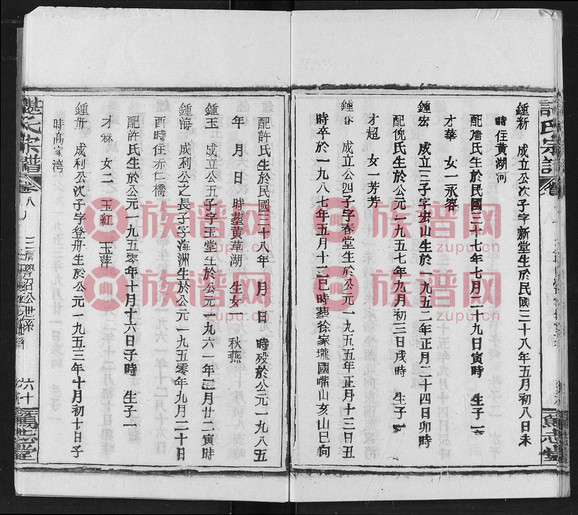 鍾新 成立公次子字新堂生於民國三十八年五月初八日未
時住黃湖河
配 氏生於民國三十七年七月二十九日寅時 生子二
才華 女一永容
鍾宏 成立三子字宏山生於一九五二年正月二十四日卯時
配倪氏生於公元一九五七年九月初三日戌時 生子一
才超 女一芳芳
鍾 成立公四子字春堂生於一九五五年正月十三日丑
時卒於一九八七年五月十二巳時葬徐家壠國嘴山亥山巳向
配許氏生於民國二十八年 月 日 時歿於公元一九八五
年 月 日時葬黃草湖 生女一 秋燕
鍾玉 成立公五子字玉堂生於公元一九六一年三月廿二寅時
鍾海 成利公之長子字 洲生於公元一九五零年九月二十日
酉時住赤仁橋
配許氏生於公元一九五零年十月十六日子時 生子一
才林 女二 玉紅 玉萍
鍾舟 成利公次子字登舟生於公元一九五三年十月初十日子
時高家湾
氏宗譜
卷八
公世係
六十
族谱网
zupu.cn